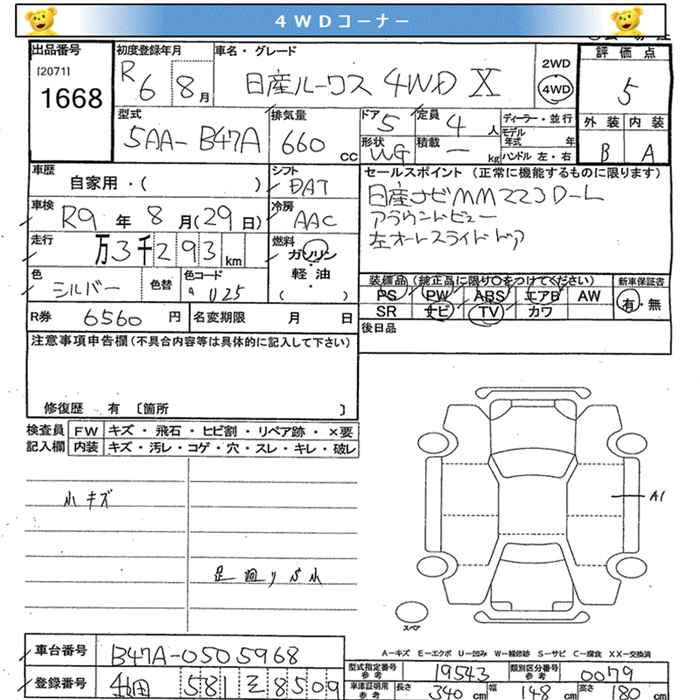 4WDコーナー
出品番号
[2071]
1668
初度登録年月
R6 8月
車名・グレード
日産ルークス 4WD X
2WD
4WD
評価点
5
型式
5AA-B47A
排気量
660 cc
ドア
5
定員
4人
ディーラー・並行
モデル年式 年
ハンドル 左・右
形状
WG
積載
ー kg
外装 内装
B A
車歴
自家用・( )
シフト
DAT
セールスポイント (正常に機能するものに限ります)
日産ナビMM223D-L
アラウンドビュー
左オートスライドドア
車検
R9年8月(29日)
冷房
AAC
走行
万3千293km
燃料
ガソリン
・
軽・油
( )
色
シルバー
色替
色コード
U25
装備品 (純正品に限り○をつけてください)
PS PW ABS エアB AW
SR ナビ TV カワ
新車保証書
有・無
R券 6560円
名変期限 月 日
後日品
注意事項申告欄 (不具合内容等は具体的に記入して下さい)
修復歴 有 〔箇所 〕
検査員記入欄
FW キズ・飛石・ヒビ割・リペア跡・×要
内装 キズ・汚レ・コゲ・穴・スレ・キレ・破レ
小キズ
足廻りサビ小
A1
スペア
A−キズ E−エクボ U−凹み W−補修跡 S−サビ C−腐食 XX−交換済
車台番号
B47A-0505968
登録番号
581 8509
型式指定番号 参考
19543
類別区分番号 参考
0079
車庫証明用 参考
長さ 340cm 幅 148cm 高さ 180cm